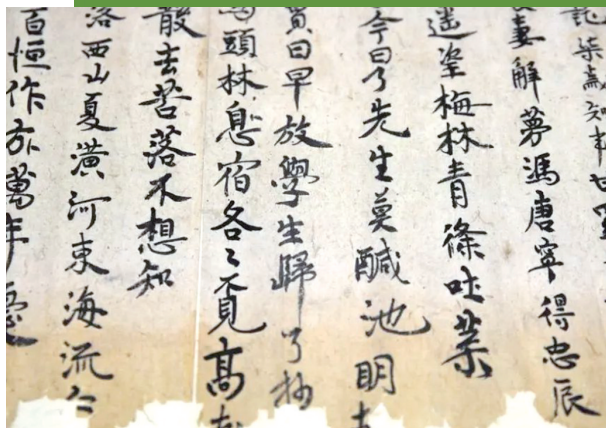 年廿
妻解夢馮唐寧得忠辰
遥望梅林青條吐葉
今日了先生莫醎池明
日早放學生歸了
頭林息宿各々覓高
散去苦落不想知
落西山夏潢河東海流
百恒作萬年